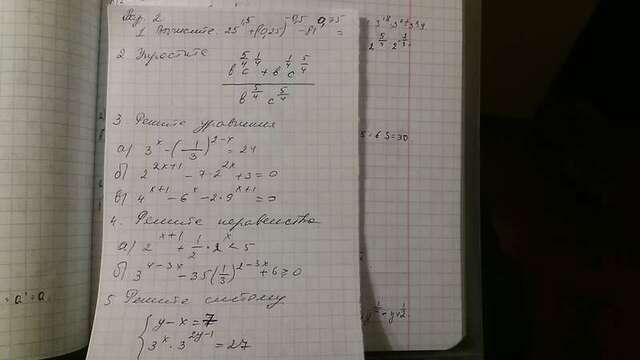 Вар. 2
1. Вычислите. 25^1,5 + (0,25)^-0,5 - 81^0,75 =
2 Упростите
b^5/4 c^1/4 + b^1/4 c^5/4
b^5/4 c^5/4
3. Решите уравнения
а) 3^x - (1/3)^2-x = 24
б) 2^2x+1 - 7·2^2x + 3 = 0
в) 4^x+1 - 6^x - 2·9^x+1 = 0
4. Решите неравенства
а) 2^x+1 + 1/2 · 2^x < 5
б) 3^4-3x - 35(1/3)^2-3x + 6 ≥ 0
5 Решите систему
y - x = 7
3^x · 3^2y-1 = 27
= a' = a